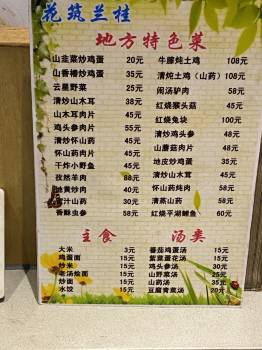 花筑兰桂
地方特色菜
山韭菜炒鸡蛋 20元
山香椿炒鸡蛋 35元
云星野菜 25元
清炒山木耳 38元
山木耳肉片 45元
鸡头参肉片 55元
清炒怀山药 45元
怀山药肉片 55元
干炸小野鱼 45元
孜然羊肉 88元
地黄炒肉 40元
汁山药 50元
香酥虫参 58元
牛膝炖土鸡 108元
清炖土鸡(山药) 108元
闷汤驴肉 58元
红烧猴头菇 45元
红烧兔块 100元
清炒鸡头参 48元
山蘑菇肉片 58元
地皮炒鸡蛋 35元
清炒山木耳 38元
怀山药炖肉 58元
清蒸山药 38元
红烧平湖鲤鱼 60元
主食
大米 3元
鸡蛋面 15元
炒米 15元
老汤烩面 15元
炒面 15元
水饺 15元
汤类
番茄鸡蛋汤 15元
紫菜蛋花汤 15元
鸡头参汤 30元
山野菜汤 25元
山药汤 35元
豆腐青菜汤 20元